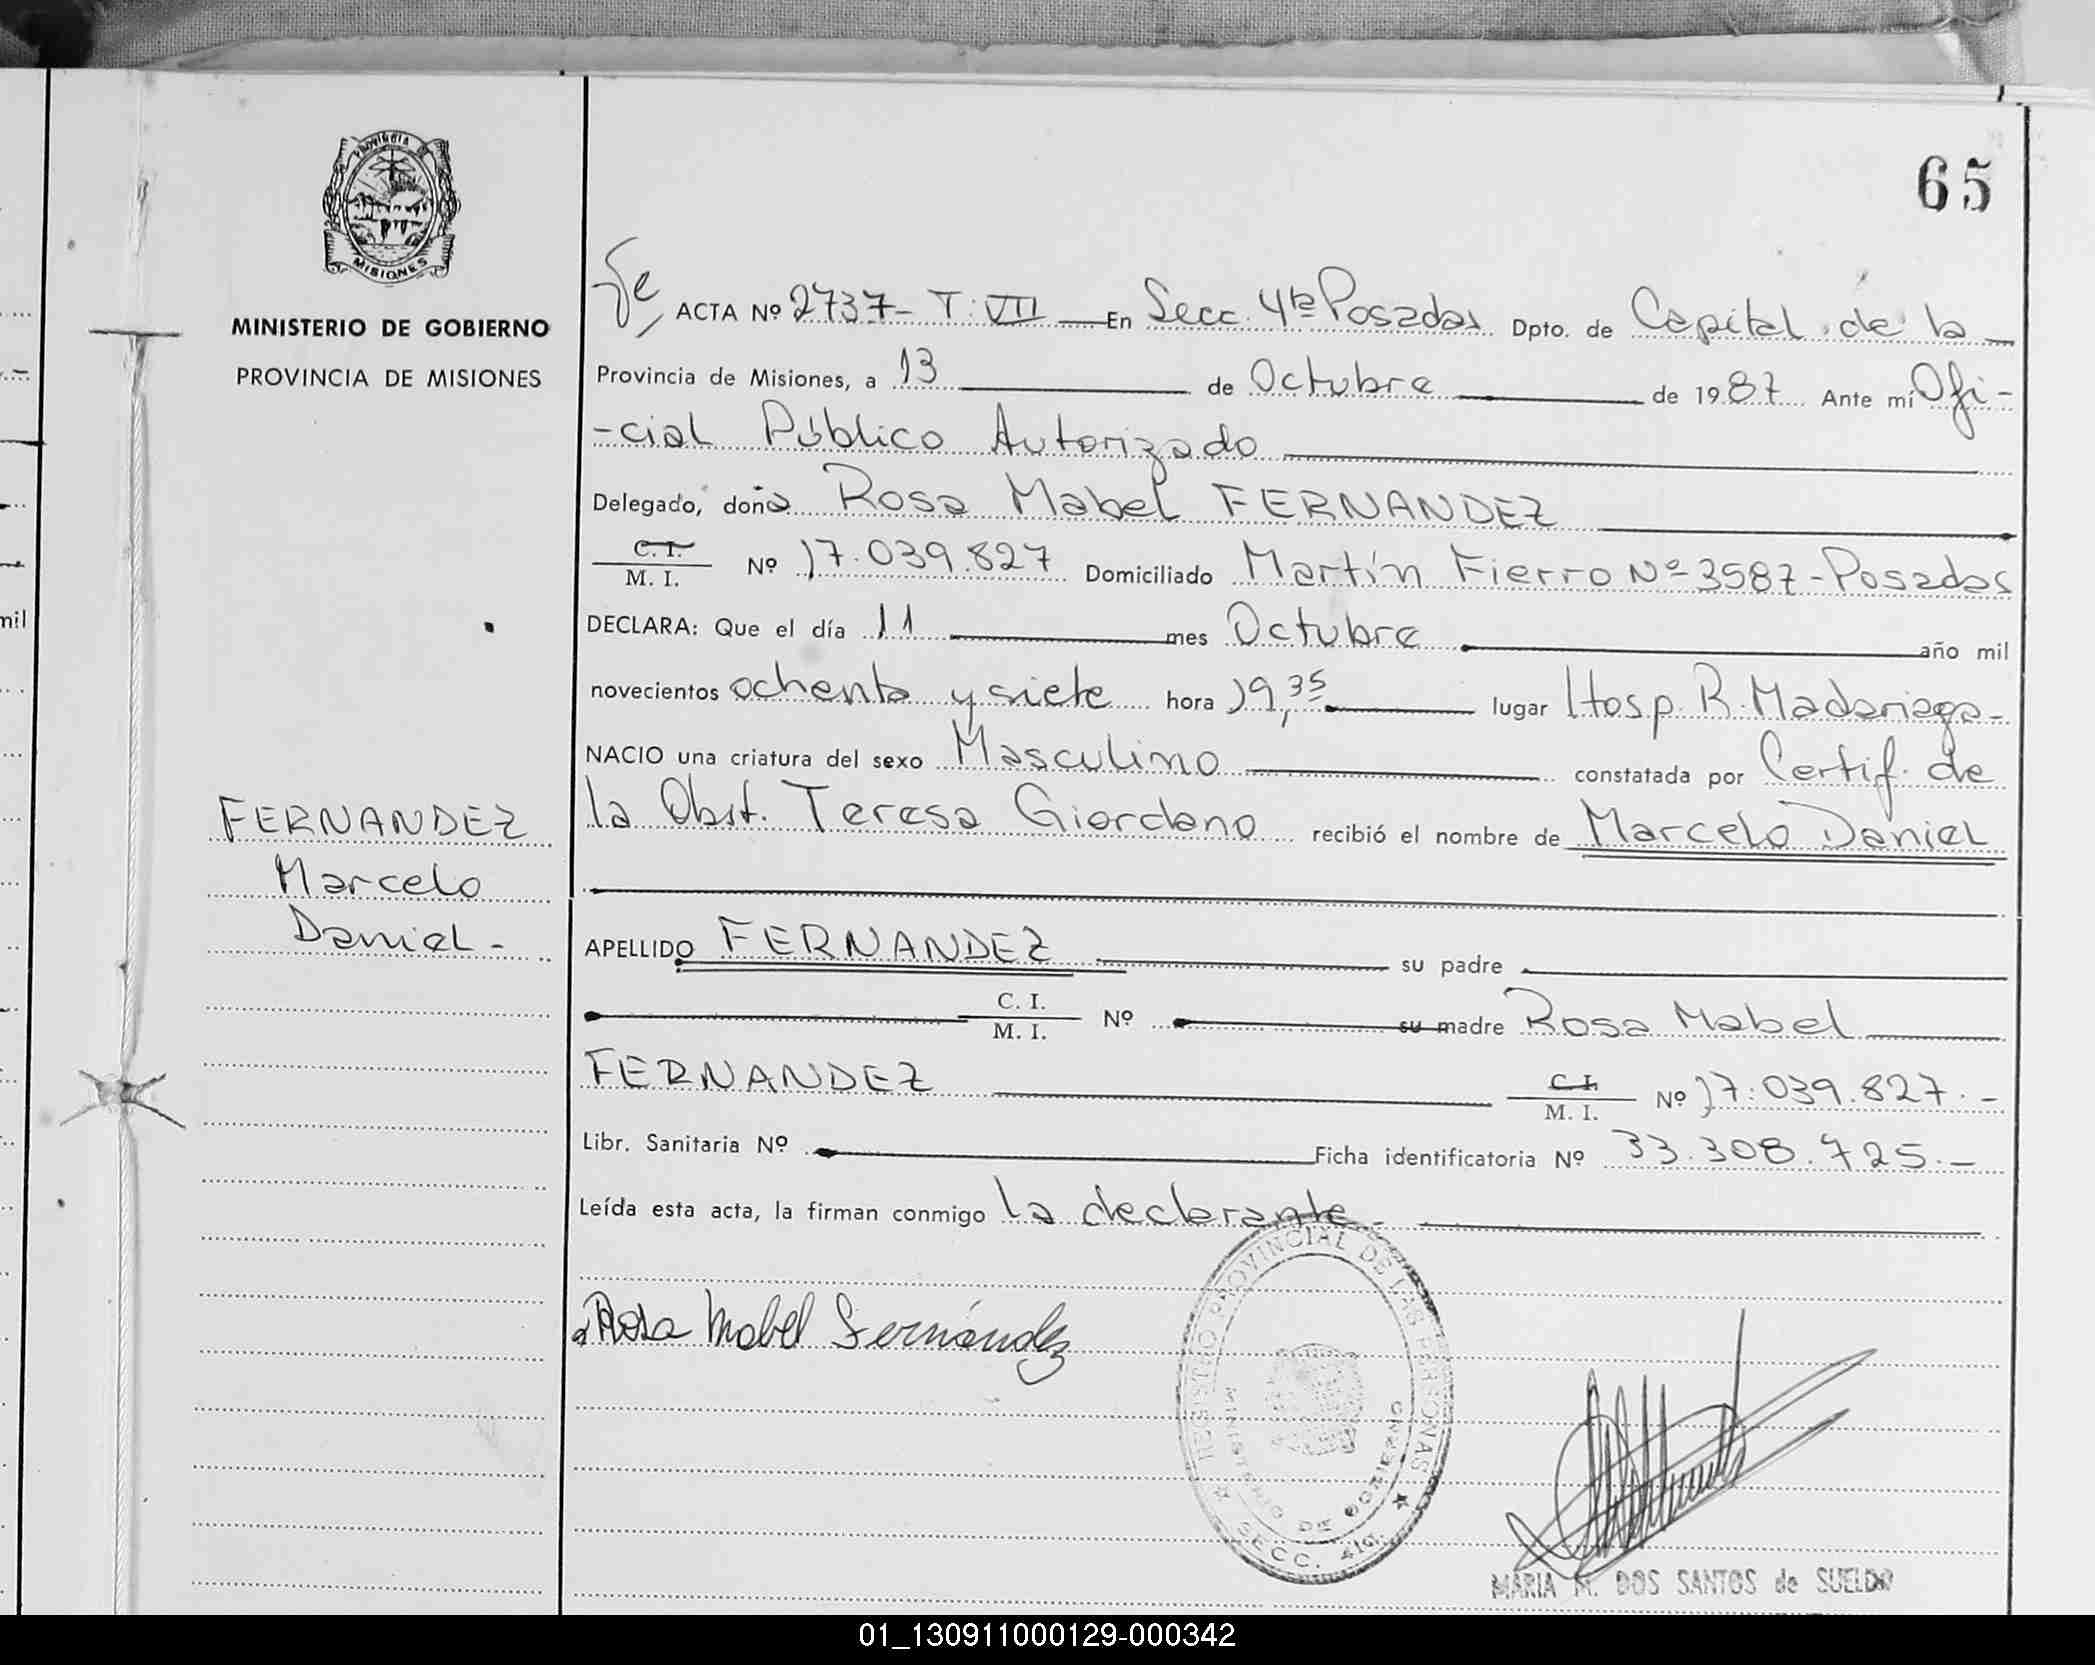 65
PROVINCIA DE
MISIONES
MINISTERIO DE GOBIERNO
PROVINCIA DE MISIONES
ACTA Nº 2737- T: VII En Secc. 4ta Posadas Dpto. de Capital de la
Provincia de Misiones, a 13 de Octubre de 1987 Ante mí Ofi-
-cial Público Autorizado
Delegado, doña Rosa Mabel FERNANDEZ
C. I.
M. I. Nº 17.039.827 Domiciliado Martín Fierro Nº 3587-Posadas
mil
DECLARA: Que el día 11 mes Octubre año mil
novecientos ochenta y siete hora 19,35 lugar Hosp. R. Madariaga-
NACIO una criatura del sexo Masculino constatada por Certif. de
la Obst. Teresa Giordano recibió el nombre de Marcelo Daniel
FERNANDEZ
Marcelo
Daniel-
APELLIDO FERNANDEZ su padre
C. I.
M. I. Nº su madre Rosa Mabel
FERNANDEZ C. I.
M. I. Nº 17.039.827.-
Libr. Sanitaria Nº Ficha identificatoria Nº 33.308.725.-
Leída esta acta, la firman conmigo la declarante.
Rosa Mabel Fernández
REGISTRO PROVINCIAL DE LAS PERSONAS
MINISTERIO DE GOBIERNO
SECC. 4ta.
MARIA M. DOS SANTOS de SUELDO
01_130911000129-000342